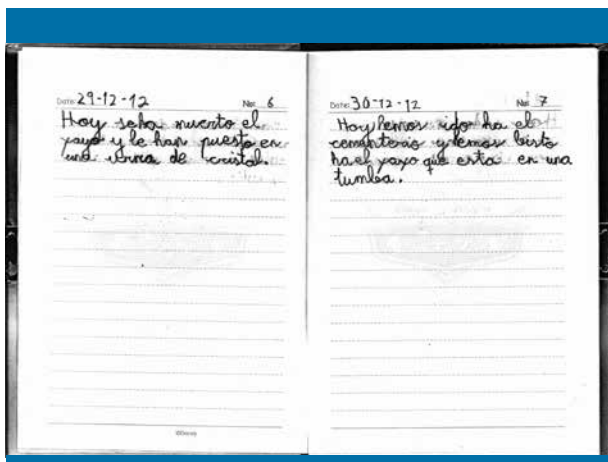 Date: 29-12-12 No: 6
Hoy seha muerto el
yayo y le han puesto en
una urna de cristal.
©Disney
Date: 30-12-12 No: 7
Hoy hemos ido ha el
cementerio y hemos bisto
ha el yayo que esta en una
tumba.